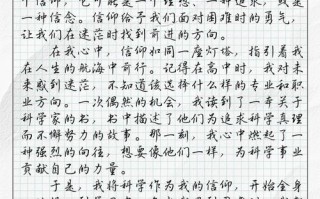 个信仰，它可能是一个理想、一种追求，或是
一种信念。信仰给予我们面对困难时的勇气，
让我们在迷茫时找到前进的方向。
在我心中，信仰如同一座灯塔，指引着我
在人生的航海中前行。记得在高中时，我对未
来感到迷茫，不知道该选择什么样的专业和职
业方向。一次偶然的机会，我读到了一本关于
科学家的书，书中描述了他们为追求科学真理
而不懈努力的故事。那一刻，我心中燃起了一
种强烈的向往，想要像他们一样，为科学事业
贡献自己的力量。
于是，我将科学作为我的信仰，开始全身